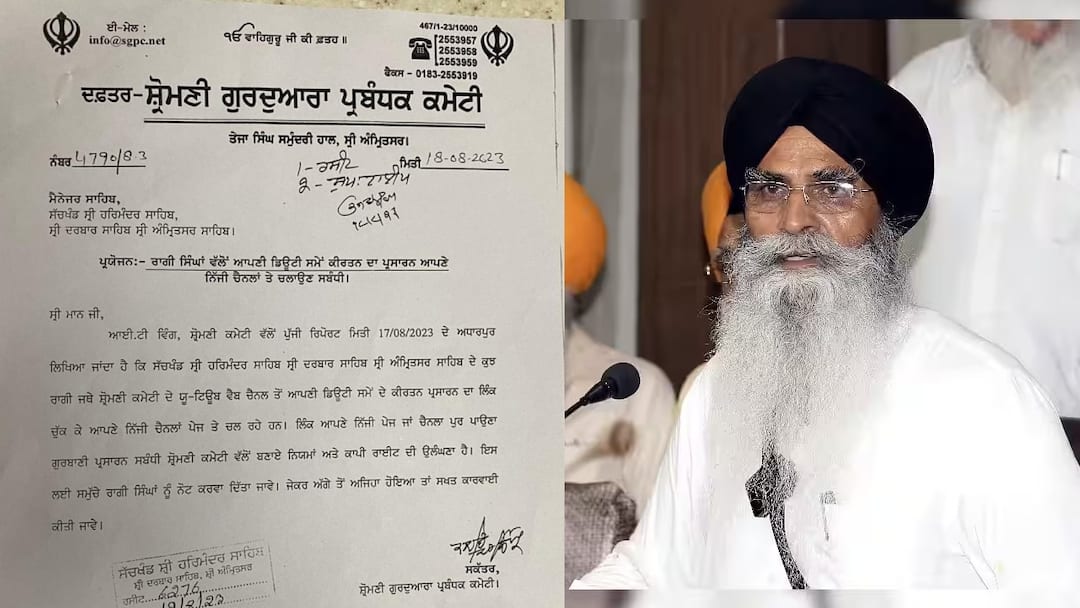 ਈ-ਮੇਲ :
info@sgpc.net
ੴ ਵਾਹਿਗੁਰੂ ਜੀ ਕੀ ਫ਼ਤਹ ॥
467/1-23/10000
2553957
2553958
2553959
ਫੈਕਸ - 0183-2553919
ਦਫ਼ਤਰ-ਸ਼੍ਰੋਮਣੀ ਗੁਰਦੁਆਰਾ ਪ੍ਰਬੰਧਕ ਕਮੇਟੀ
ਤੇਜਾ ਸਿੰਘ ਸਮੁੰਦਰੀ ਹਾਲ, ਸ੍ਰੀ ਅੰਮ੍ਰਿਤਸਰ।
ਨੰਬਰ 4790/8.3 ਮਿਤੀ 18-08-2023
1- ਰਸੀਟ
ਮੈਨੇਜਰ ਸਾਹਿਬ,
ਸੱਚਖੰਡ ਸ੍ਰੀ ਹਰਿਮੰਦਰ ਸਾਹਿਬ,
ਸ੍ਰੀ ਦਰਬਾਰ ਸਾਹਿਬ ਸ੍ਰੀ ਅੰਮ੍ਰਿਤਸਰ ਸਾਹਿਬ।
ਪ੍ਰਯੋਜਨ:- ਰਾਗੀ ਸਿੰਘਾਂ ਵੱਲੋਂ ਆਪਣੀ ਡਿਊਟੀ ਸਮੇਂ ਕੀਰਤਨ ਦਾ ਪ੍ਰਸਾਰਨ ਆਪਣੇ
ਨਿੱਜੀ ਚੈਨਲਾਂ ਤੇ ਚਲਾਉਣ ਸਬੰਧੀ।
ਸ੍ਰੀ ਮਾਨ ਜੀ,
ਆਈ.ਟੀ ਵਿੰਗ, ਸ਼੍ਰੋਮਣੀ ਕਮੇਟੀ ਵੱਲੋਂ ਪੁੱਜੀ ਰਿਪੋਰਟ ਮਿਤੀ 17/08/2023 ਦੇ ਅਧਾਰਪੁਰ
ਲਿਖਿਆ ਜਾਂਦਾ ਹੈ ਕਿ ਸੱਚਖੰਡ ਸ੍ਰੀ ਹਰਿਮੰਦਰ ਸਾਹਿਬ ਸ੍ਰੀ ਦਰਬਾਰ ਸਾਹਿਬ ਸ੍ਰੀ ਅੰਮ੍ਰਿਤਸਰ ਸਾਹਿਬ ਦੇ ਕੁਝ
ਰਾਗੀ ਜਥੇ ਸ਼੍ਰੋਮਣੀ ਕਮੇਟੀ ਦੇ ਯੂ-ਟਿਊਬ ਵੈਬ ਚੈਨਲ ਤੋਂ ਆਪਣੀ ਡਿਊਟੀ ਸਮੇਂ ਦੇ ਕੀਰਤਨ ਪ੍ਰਸਾਰਨ ਦਾ ਲਿੰਕ
ਚੁੱਕ ਕੇ ਆਪਣੇ ਨਿੱਜੀ ਚੈਨਲਾਂ ਪੇਜ ਤੇ ਚਲ ਰਹੇ ਹਨ। ਲਿੰਕ ਆਪਣੇ ਨਿੱਜੀ ਪੇਜ ਜਾਂ ਚੈਨਲਾ ਪੁਰ ਪਾਉਣਾ
ਗੁਰਬਾਣੀ ਪ੍ਰਸਾਰਨ ਸਬੰਧੀ ਸ਼੍ਰੋਮਣੀ ਕਮੇਟੀ ਵੱਲੋਂ ਬਣਾਏ ਨਿਯਮਾਂ ਅਤੇ ਕਾਪੀ ਰਾਈਟ ਦੀ ਉਲੰਘਣਾ ਹੈ। ਇਸ
ਲਈ ਸਮੁੱਚੇ ਰਾਗੀ ਸਿੰਘਾਂ ਨੂੰ ਨੋਟ ਕਰਵਾ ਦਿੱਤਾ ਜਾਵੇ। ਜੇਕਰ ਅੱਗੇ ਤੋਂ ਅਜਿਹਾ ਹੋਇਆ ਤਾਂ ਸਖਤ ਕਾਰਵਾਈ
ਕੀਤੀ ਜਾਵੇ।
ਸਕੱਤਰ,
ਸ਼੍ਰੋਮਣੀ ਗੁਰਦੁਆਰਾ ਪ੍ਰਬੰਧਕ ਕਮੇਟੀ।
ਸੱਚਖੰਡ ਸ੍ਰੀ ਹਰਿਮੰਦਰ ਸਾਹਿਬ
ਸ੍ਰੀ ਦਰਬਾਰ ਸਾਹਿਬ, ਸ੍ਰੀ ਅੰਮ੍ਰਿਤਸਰ
ਰਸੀਟ